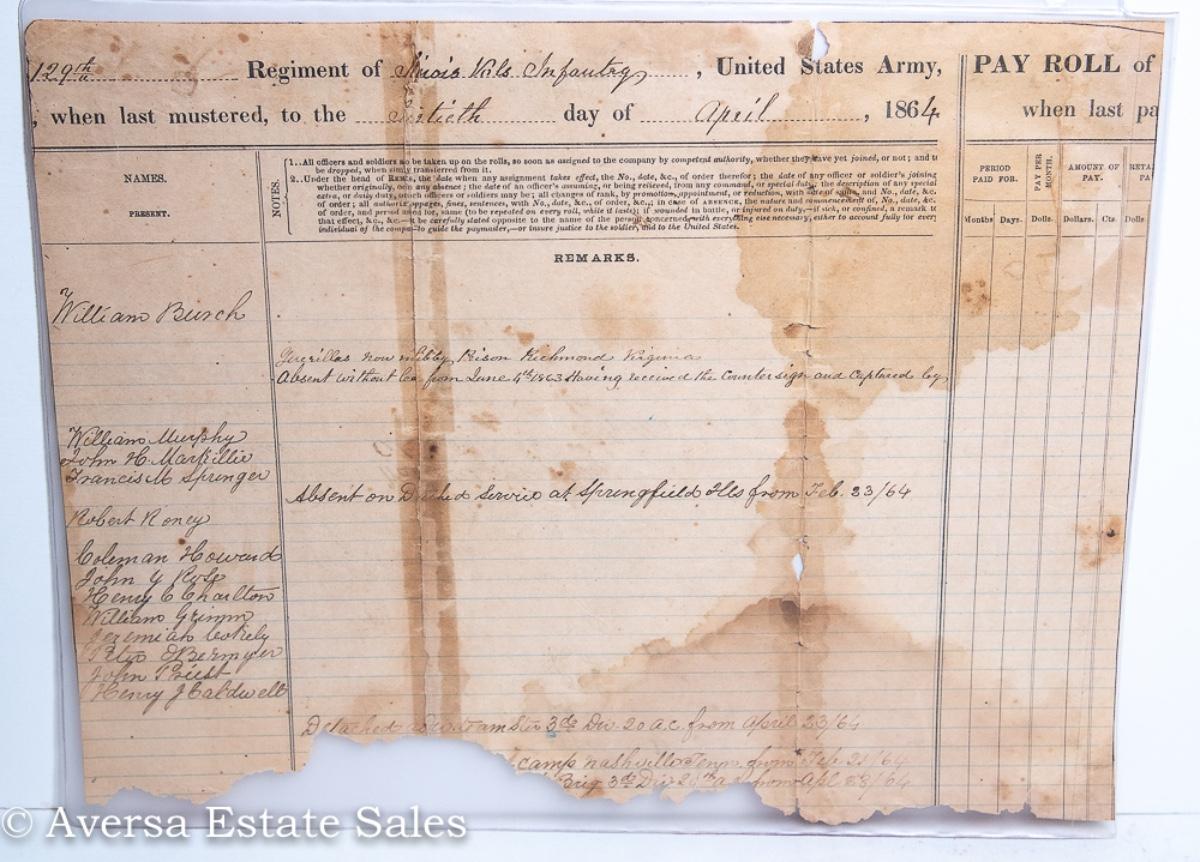 129th Regiment of Illinois Vols. Infantry, United States Army,
, when last mustered, to the Thirtieth day of April, 1864
PAY ROLL of
when last pa
NAMES.
PRESENT.
NOTES.
1..All officers and soldiers to be taken up on the rolls, so soon as assigned to the company by competent authority, whether they have yet joined, or not; and to
be dropped, when simply transferred from it.
2..Under the head of REM'KS, the date when any assignment takes effect, the No., date, &c., of order therefor; the date of any officer or soldier's joining
whether originally, or any absence; the date of an officer's assuming, or being relieved, from any command, or special duty; the description of any special
extra, or daily duty, which officers or soldiers may be; all changes of rank, by promotion, appointment, or reduction, with date of same, and No., date, &c.
of order; all authorized stoppages, fines, sentences, with No., date, &c., of order, &c.; in case of ABSENCE, the nature and commencement of, No., date, &c.
of order, and period assigned for, same (to be repeated on every roll, while it lasts); if wounded in battle, or injured on duty,—if sick, or confined, a remark to
that effect, &c., &c.— to be carefully stated opposite to the name of the person concerned, with everything else necessary, either to account fully for every
individual of the company to guide the paymaster,—or insure justice to the soldier, and to the United States.
PERIOD
PAID FOR.
PAY PER
MONTH.
AMOUNT OF
PAY.
RETA
PA
Months Days. Dolls. Dollars. Cts. Dolls
REMARKS.
William Burch
Guerillas now in Libby Prison Richmond Virginia
Absent without from June 4th 1863 Having received the Countersign and Captured by
William Murphy
John H. Markillie
Francis M Springer
Absent on Service at Springfield Ills from Feb. 23/64
Robert Roney
Coleman Howard
John Y Rose
Henry C Charlton
William Grimm
Jeremiah
Peter OBermyer
John Priest
Henry J Caldwell
Detached as 3de Div. 20 a.c. from April 23/64
camp nashville Tenn from Feb 21/64
Brig 3de Div 20th a.c. from Apl 23/64
© Aversa Estate Sales